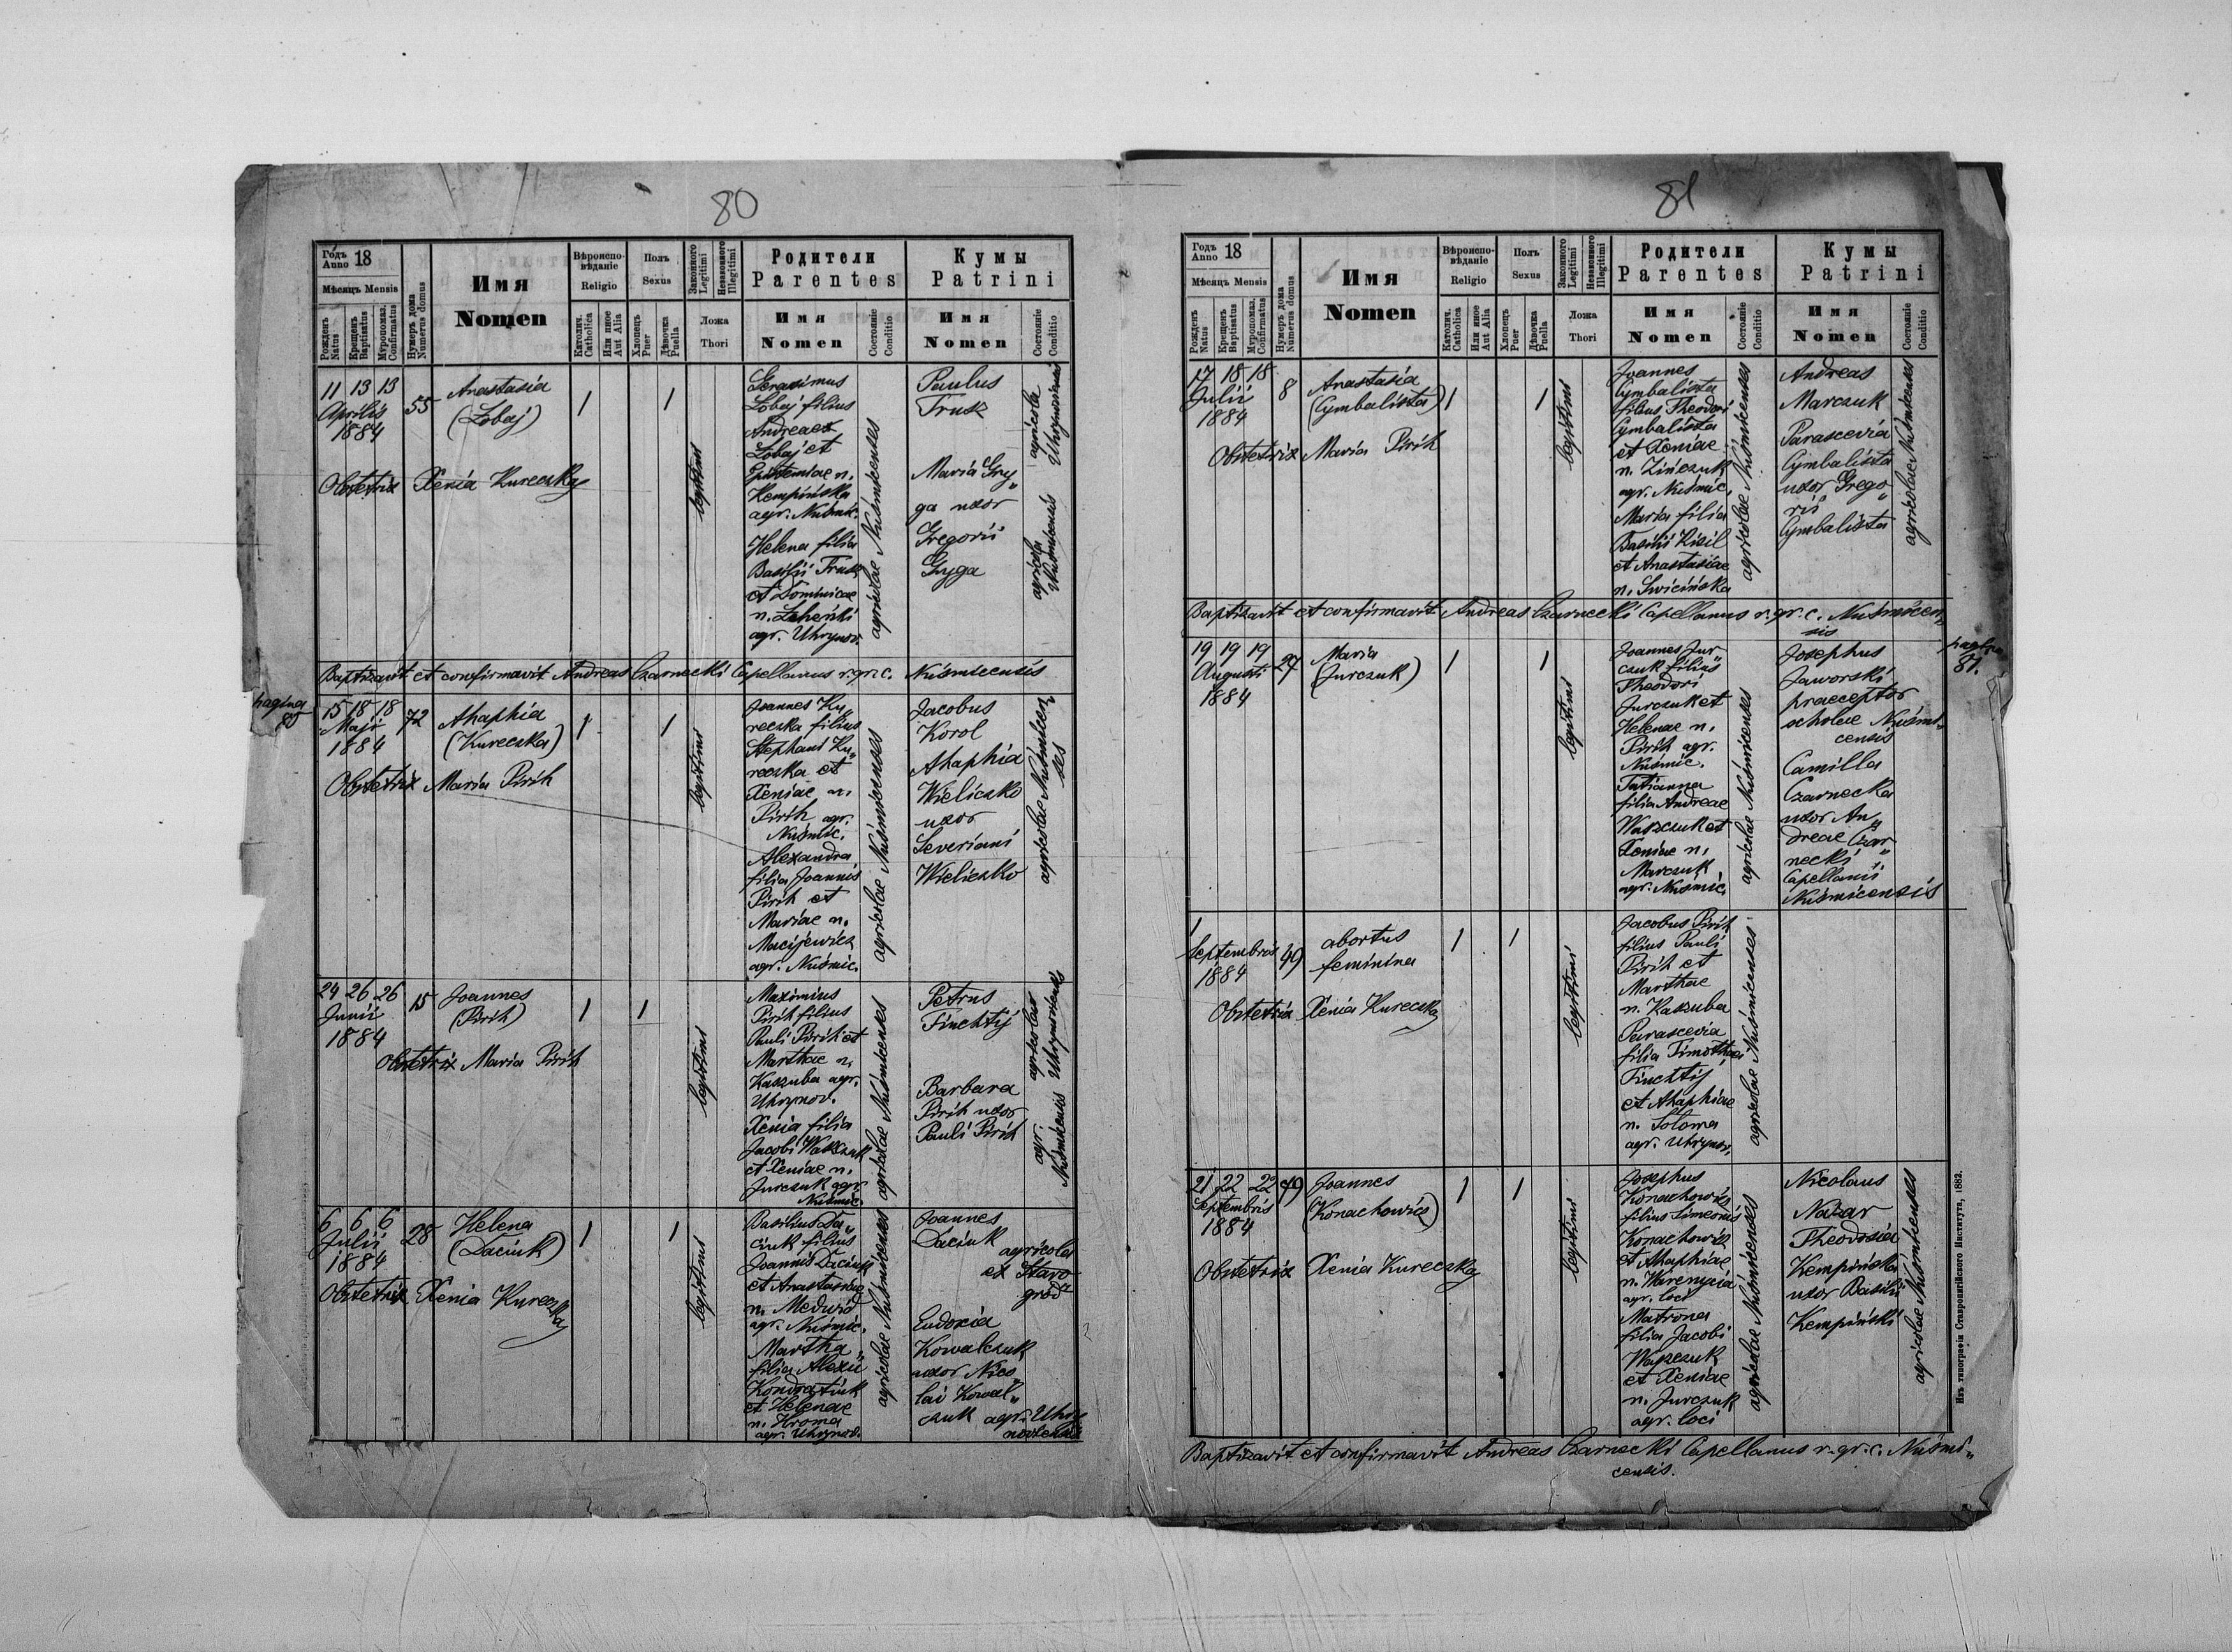 80
Годъ Anno 18
Мѣсяцъ Mensis
Рожденъ Natus
Крещенъ Baptisatus
Муропомаз. Confirmatus
Нумеръ дома Numerus domus
Имя
Nomen
Вѣроиспо-
вѣданіе
Religio
Католич. Catholica
Или иное Aut Alia
Полъ
Sexus
Хлопець Puer
Дѣвочка Puella
Законного Legitimi
Незаконного Illegitimi
Ложа
Thori
Родители
Parentes
Имя
Nomen
Состояніе Conditio
Кумы
Patrini
Имя
Nomen
Состояніе Conditio
11 13 13
Aprilis
1884
55
Anastasia
(Lobaj)
1
1
Obstetrix Xenia Kureczka
legitimi
Gerasimus
Lobaj filius
Andreae
Lobaj et
n.
Kempińska
agr. Nuśmic.
Helena filia
Basilii Trusz
et Dominicae
n.
agr. Uhrynov.
agricolae Nuśmicenses
Paulus
Trusz
Maria Gry„
ga uxor
Gregorii
Gryga
agricola
agricola
Baptizavit et confirmavit Andreas Czarnecki Capellanus r. gr. c. Nuśmicensis
pagina
80
15 18 18
Maji
1884
72
Ahaphia
(Kureczka)
1
1
Obstetrix Maria Pirih
legitimi
Joannes Ku„
reczka filius
Stephani Ku„
reczka et
Xeniae n.
Pirih agr.
Nuśmic.
Alexandra
filia Joannis
Pirih et
Mariae n.
Macijewicz
agr. Nuśmic.
agricolae Nuśmicenses
Jacobus
Korol
Ahaphia
Wieliczko
uxor
Severiani
Wieliczko
agricolae Nuśmicen„
ses
24 26 26
Junii
1884
15
Joannes
(Pirih)
1
1
Obstetrix Maria Pirih
legitimi
Maximus
Pirih filius
Pauli Pirih et
Marthae n.
Kaszuba agr.
Uhrynov.
Xenia filia
Jacobi Waszczuk
et Xeniae n.
Jurczuk agr.
Nuśmic.
agricolae Nuśmicenses
Petrus
Finchtij
Barbara
Pirih uxor
Pauli Pirih
agricolae
agr.
Nuśmicensis
6 6 6
Julii
1884
28
Helena
(Daciuk)
1
1
Obstetrix Xenia Kureczka
legitimi
Basilius Da„
ciuk filius
Joannis Daciuk
et Anastasiae
n. Medwid
agr. Nuśmic.
Martha
filia Alexii
Kondratiuk
et Helenae
n. Hroma
agr. Uhrynov.
agricolae Nuśmicenses
Joannes
Daciuk
agricola
ex Staro
grod
Eudoxia
Kowalczuk
uxor Nico„
lai Kowal„
czuk agr. Uhry
noviensis
81
Годъ Anno 18
Мѣсяцъ Mensis
Рожденъ Natus
Крещенъ Baptisatus
Муропомаз. Confirmatus
Нумеръ дома Numerus domus
Имя
Nomen
Вѣроиспо-
вѣданіе
Religio
Католич. Catholica
Или иное Aut Alia
Полъ
Sexus
Хлопець Puer
Дѣвочка Puella
Законного Legitimi
Незаконного Illegitimi
Ложа
Thori
Родители
Parentes
Имя
Nomen
Состояніе Conditio
Кумы
Patrini
Имя
Nomen
Состояніе Conditio
17 18 18
Julii
1884
8
Anastasia
(Cymbalista)
1
1
Obstetrix Maria Pirih
legitimi
Joannes
Cymbalista
filius Theodori
Cymbalista
et Xeniae
n. Zińczuk
agr. Nuśmic.
Maria filia
Basilii Kisil
et Anastasiae
n. Swicińska
agricolae Nuśmicenses
Andreas
Marczuk
Parascevia
Cymbalista
uxor Grego„
rii
Cymbalista
agricolae Nuśmicenses
Baptizavit et confirmavit Andreas Czarnecki Capellanus r. gr. c. Nuśmicen„
sis
pagina
81.
19 19 19
Augusti
1884
27
Maria
(Jurczuk)
1
1
legitimi
Joannes Jur„
czuk filius
Theodori
Jurczuk et
Helenae n.
Pirih agr.
Nuśmic.
Tatianna
filia Andreae
Waszczuk et
Xeniae n.
Marczuk
agr. Nuśmic.
agricolae Nuśmicenses
Josephus
Jaworski
praeceptor
scholae Nuśmi„
censis
Camilla
Czarnecka
uxor An„
dreae Czar„
necki
Capellani
Nuśmicensis
1
Septembris
1884
49
abortus
feminina
1
1
Obstetrix Xenia Kureczka
legitimi
Jacobus Pirih
filius Pauli
Pirih et
Marthae
n. Kaszuba
Parascevia
filia Timothei
Finchtij
et Ahaphiae
n. Soloma
agr. Uhrynov.
agricolae Nuśmicenses
21 22 22
Septembris
1884
49
Joannes
(Konachowicz)
1
1
Obstetrix Xenia Kureczka
legitimi
Josephus
Konachowicz
filius Simeonis
Konachowicz
et Ahaphiae
n.
agr. loci
Matrona
filia Jacobi
Waszczuk
et Xeniae
n. Jurczuk
agr. loci
agricolae Nuśmicenses
Nicolaus
Nazar
Theodosia
Kempińska
uxor Basilii
Kempiński
agricolae Nuśmicenses
Baptizavit et confirmavit Andreas Czarnecki Capellanus r. gr. c. Nuśmi„
censis.
Изъ типографіи Ставропигійского Института, 1882.